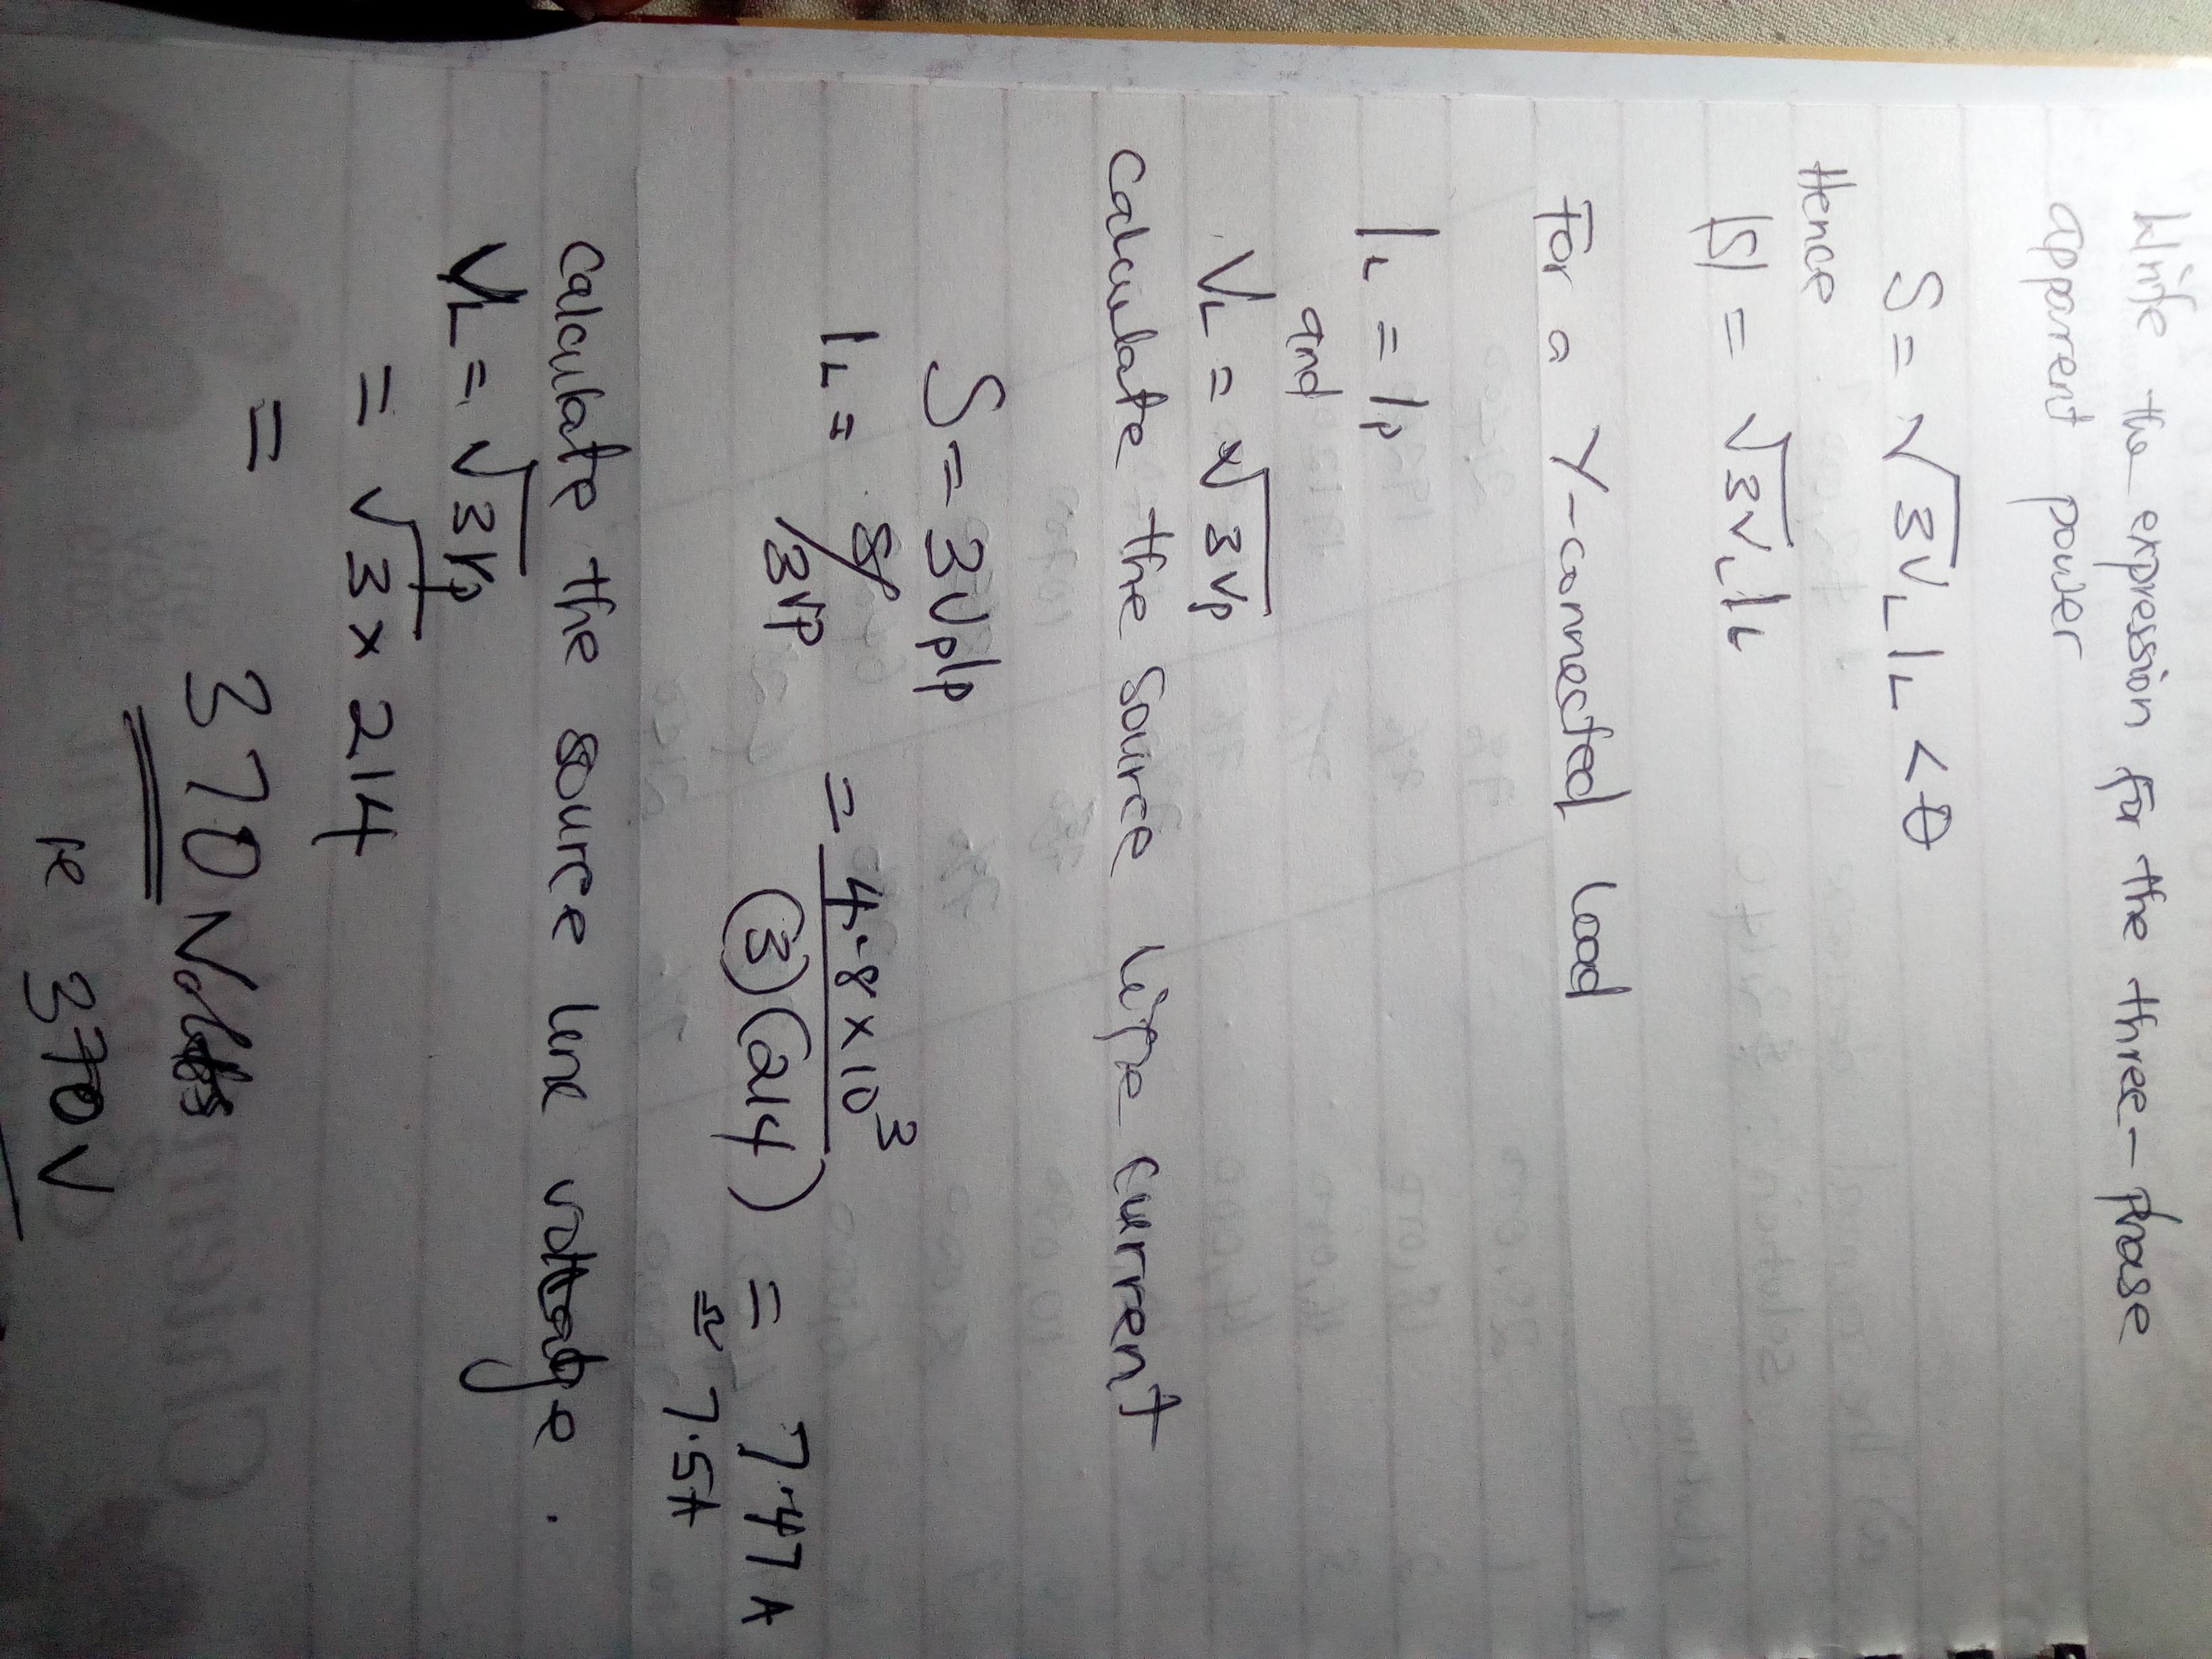 Write the expression for the three-phase
apparent power
S = √3VL IL < θ
Hence
|S| = √3VL IL
For a Y-connected load
IL = Ip
and
VL = √3Vp
Calculate the source line current
S = 3VpIp
IL = S/3Vp = 4.8 x 10³/(3)(214) = 7.47A
≃ 7.5A
Calculate the source line voltage.
VL = √3Vp
= √3 x 214
=
370 Volts
370V